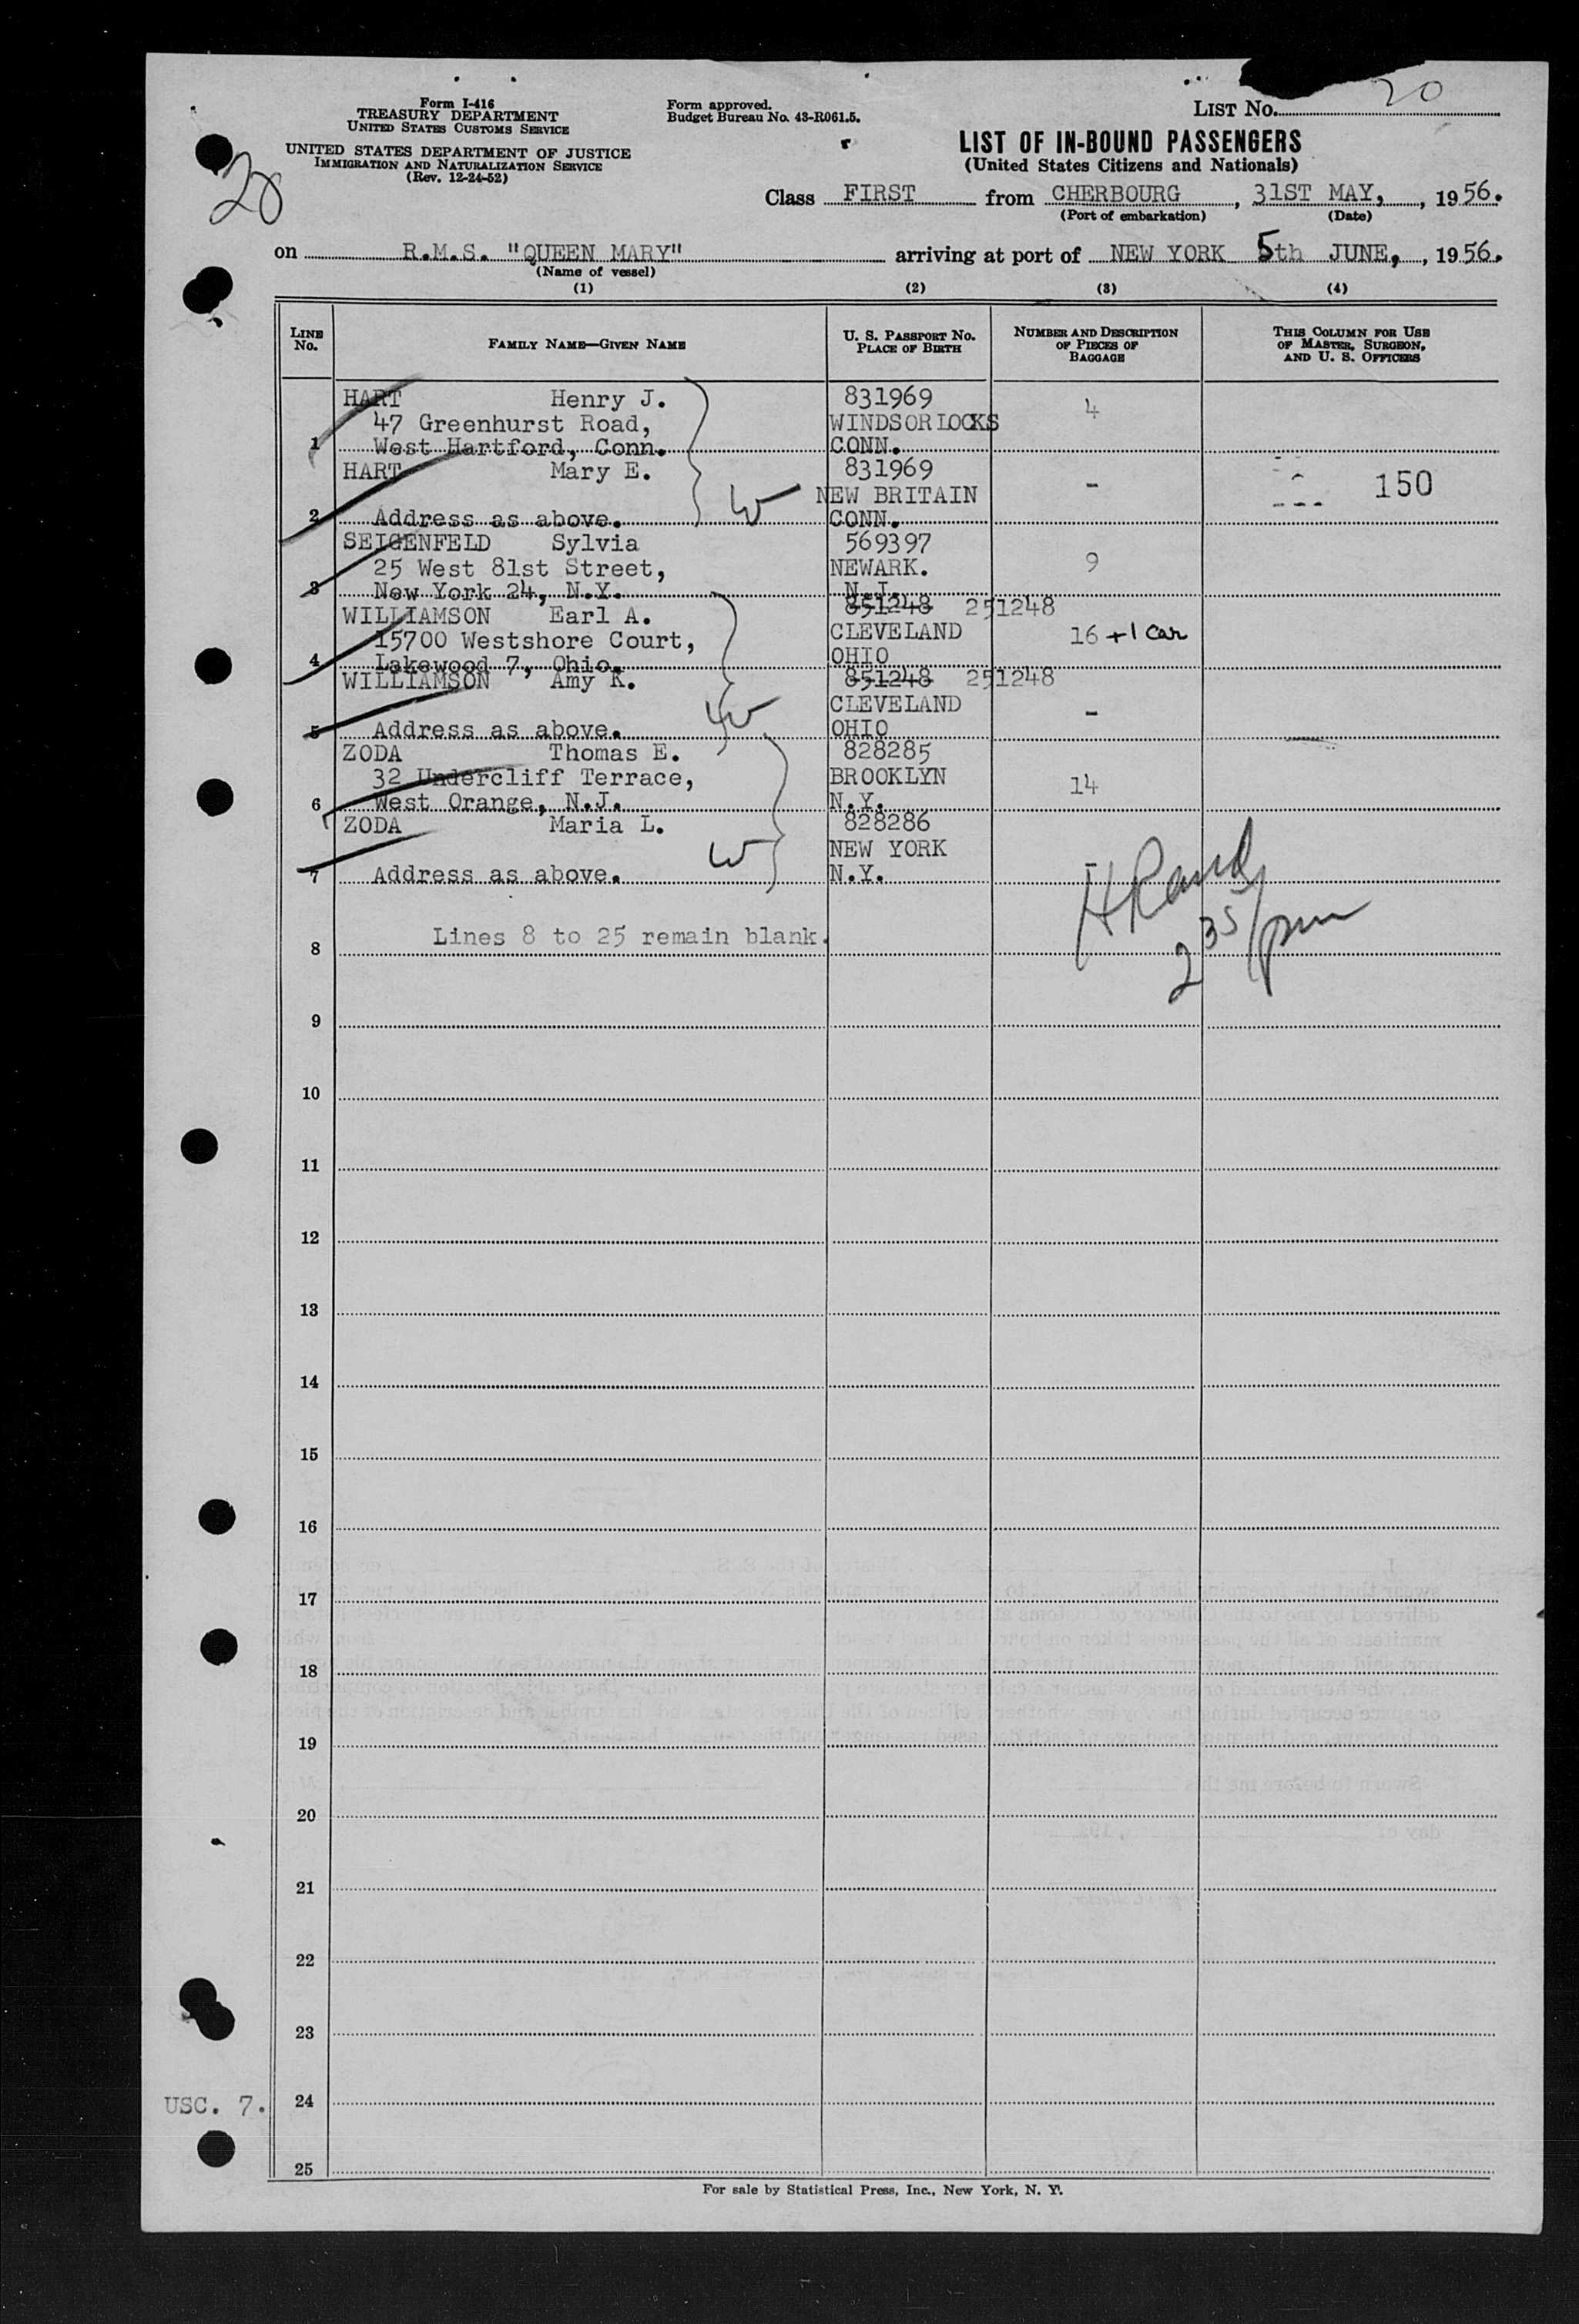 Form I-416
TREASURY DEPARTMENT
UNITED STATES CUSTOMS SERVICE
UNITED STATES DEPARTMENT OF JUSTICE
IMMIGRATION AND NATURALIZATION SERVICE
(Rev. 12-24-52)
Form approved.
Budget Bureau No. 43-R061.5.
LIST No. 20
20
LIST OF IN-BOUND PASSENGERS
(United States Citizens and Nationals)
Class FIRST from CHERBOURG, 31ST MAY, 1956.
(Port of embarkation) (Date)
on R.M.S. "QUEEN MARY" arriving at port of NEW YORK 5th JUNE, 1956.
(Name of vessel)
(1) (2) (3) (4)
LINE No. FAMILY NAME—GIVEN NAME U. S. PASSPORT No. PLACE OF BIRTH NUMBER AND DESCRIPTION OF PIECES OF BAGGAGE THIS COLUMN FOR USE OF MASTER, SURGEON, AND U. S. OFFICERS
HART Henry J. 831969 4
47 Greenhurst Road, WINDSOR LOCKS
1 West Hartford, Conn. CONN.
HART Mary E. 831969
W NEW BRITAIN - 150
2 Address as above. CONN.
SEIGENFELD Sylvia 569397
25 West 81st Street, NEWARK. 9
3 New York 24, N.Y. N.J.
WILLIAMSON Earl A. 851248 251248
15700 Westshore Court, CLEVELAND 16 + 1 car
4 Lakewood 7, Ohio. OHIO
WILLIAMSON Amy K. 851248 251248
CLEVELAND -
5 Address as above. OHIO
ZODA Thomas E. 828285
32 Undercliff Terrace, BROOKLYN 14
6 West Orange, N.J. N.Y.
ZODA Maria L. 828286
W NEW YORK -
7 Address as above. N.Y.
8 Lines 8 to 25 remain blank.
2 35/pm
9
10
11
12
13
14
15
16
17
18
19
20
21
22
23
USC. 7. 24
25
For sale by Statistical Press, Inc., New York, N. Y.